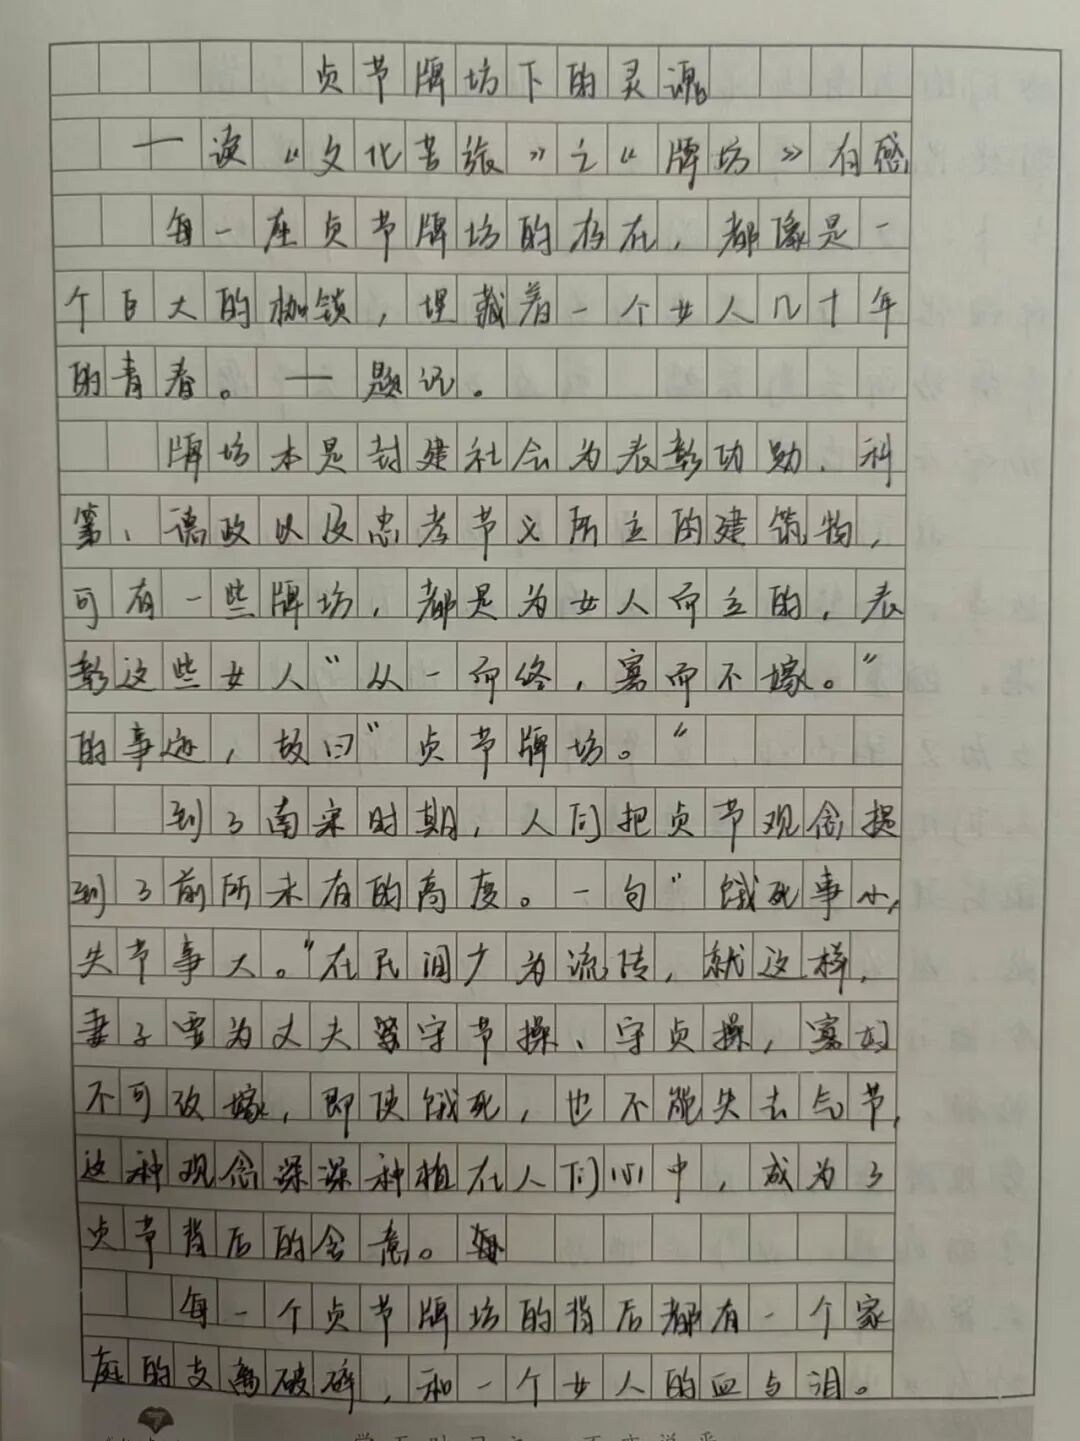 贞节牌坊下的灵魂
一读《文化苦旅》之《牌坊》有感
每一座贞节牌坊的存在，都像是一
个巨大的枷锁，埋藏着一个女人几十年
的青春。——题记。
牌坊本是封建社会为表彰功勋、科
第、德政以及忠孝节义所立的建筑物，
可有一些牌坊，都是为女人而立的，表
彰这些女人“从一而终，寡而不嫁。”
的事迹，故曰“贞节牌坊。“
到了南宋时期，人们把贞节观念提
到了前所未有的高度。一句“饿死事小，
失节事大。”在民间广为流传，就这样，
妻子要为丈夫守节操、守贞操，寡妇
不可改嫁，即使饿死，也不能失去气节，
这种观念深深种植在人们心中，成为了
贞节背后的含意。
每一个贞节牌坊的背后都有一个家
庭的支离破碎，和一个女人的血与泪。